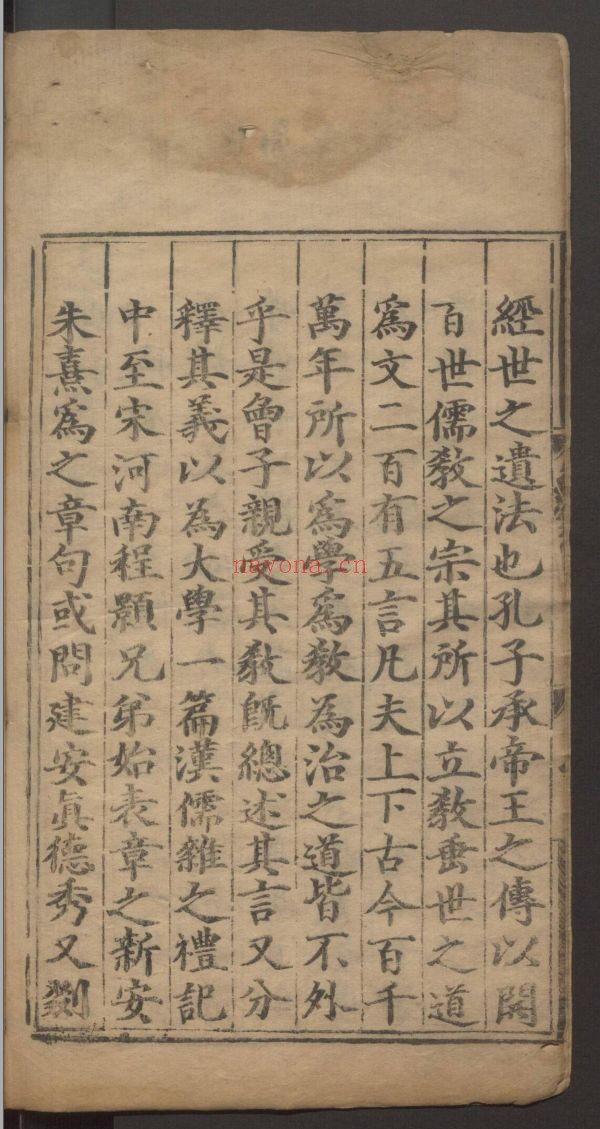 經世之遺法也孔子承帝王之傳以開
百世儒教之宗其所以立教垂世之道
爲文二百有五言凡夫上下古今百千
萬年所以爲學爲教為治之道皆不外
乎是曾子親受其教旣總述其言又分
釋其義以為大學一篇漢儒雜之禮記
中至宋河南程顥兄弟始表章之新安
朱熹爲之章句或問建安眞德秀又剟
nayona.cn